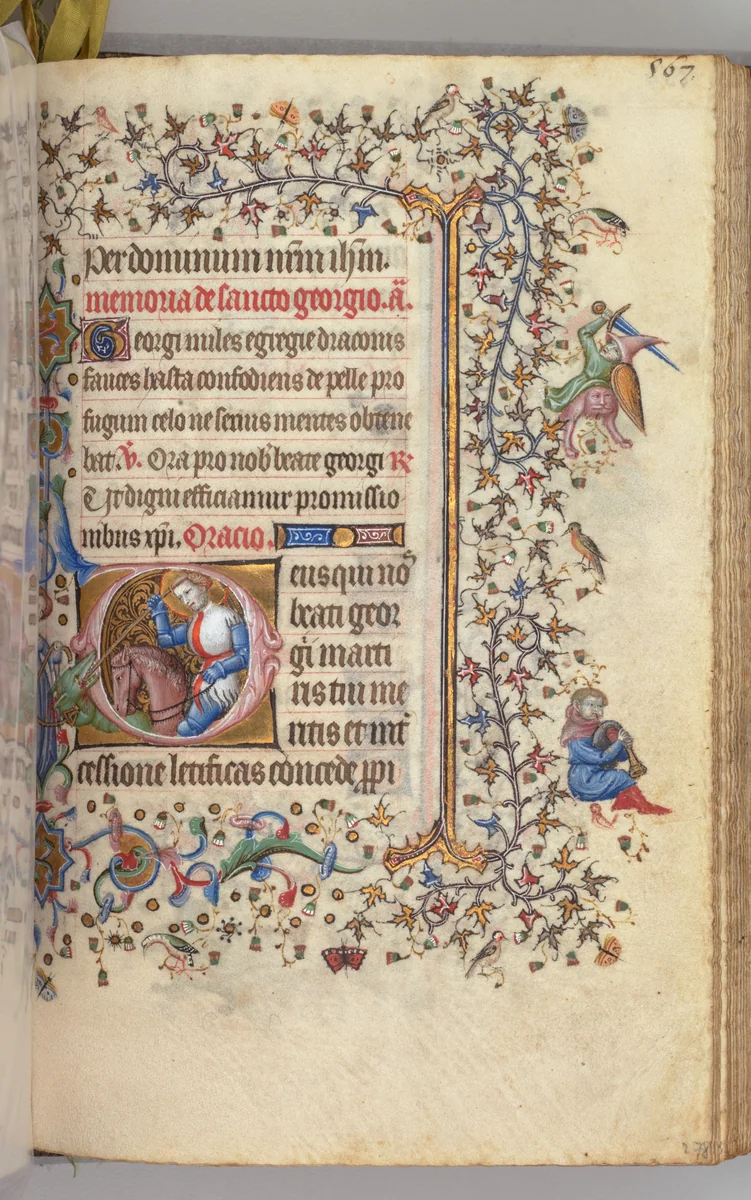 567.
per dominum nr̄m ih̄m.
memoria de sancto georgio. a͞.
Georgi miles egregie draconis
fauces hasta confodiens de pelle pro
fugum celo ne serius mentes obtene
bat. V̄. Ora pro nob̄ beate georgi R̄
Vt digni efficiamur promissio
nibus xp̄i. Oracio.
Deus qui nos
beati geor
gi marti
ris tui me
ritis et int̄
cessione letificas concede ꝓpi
278